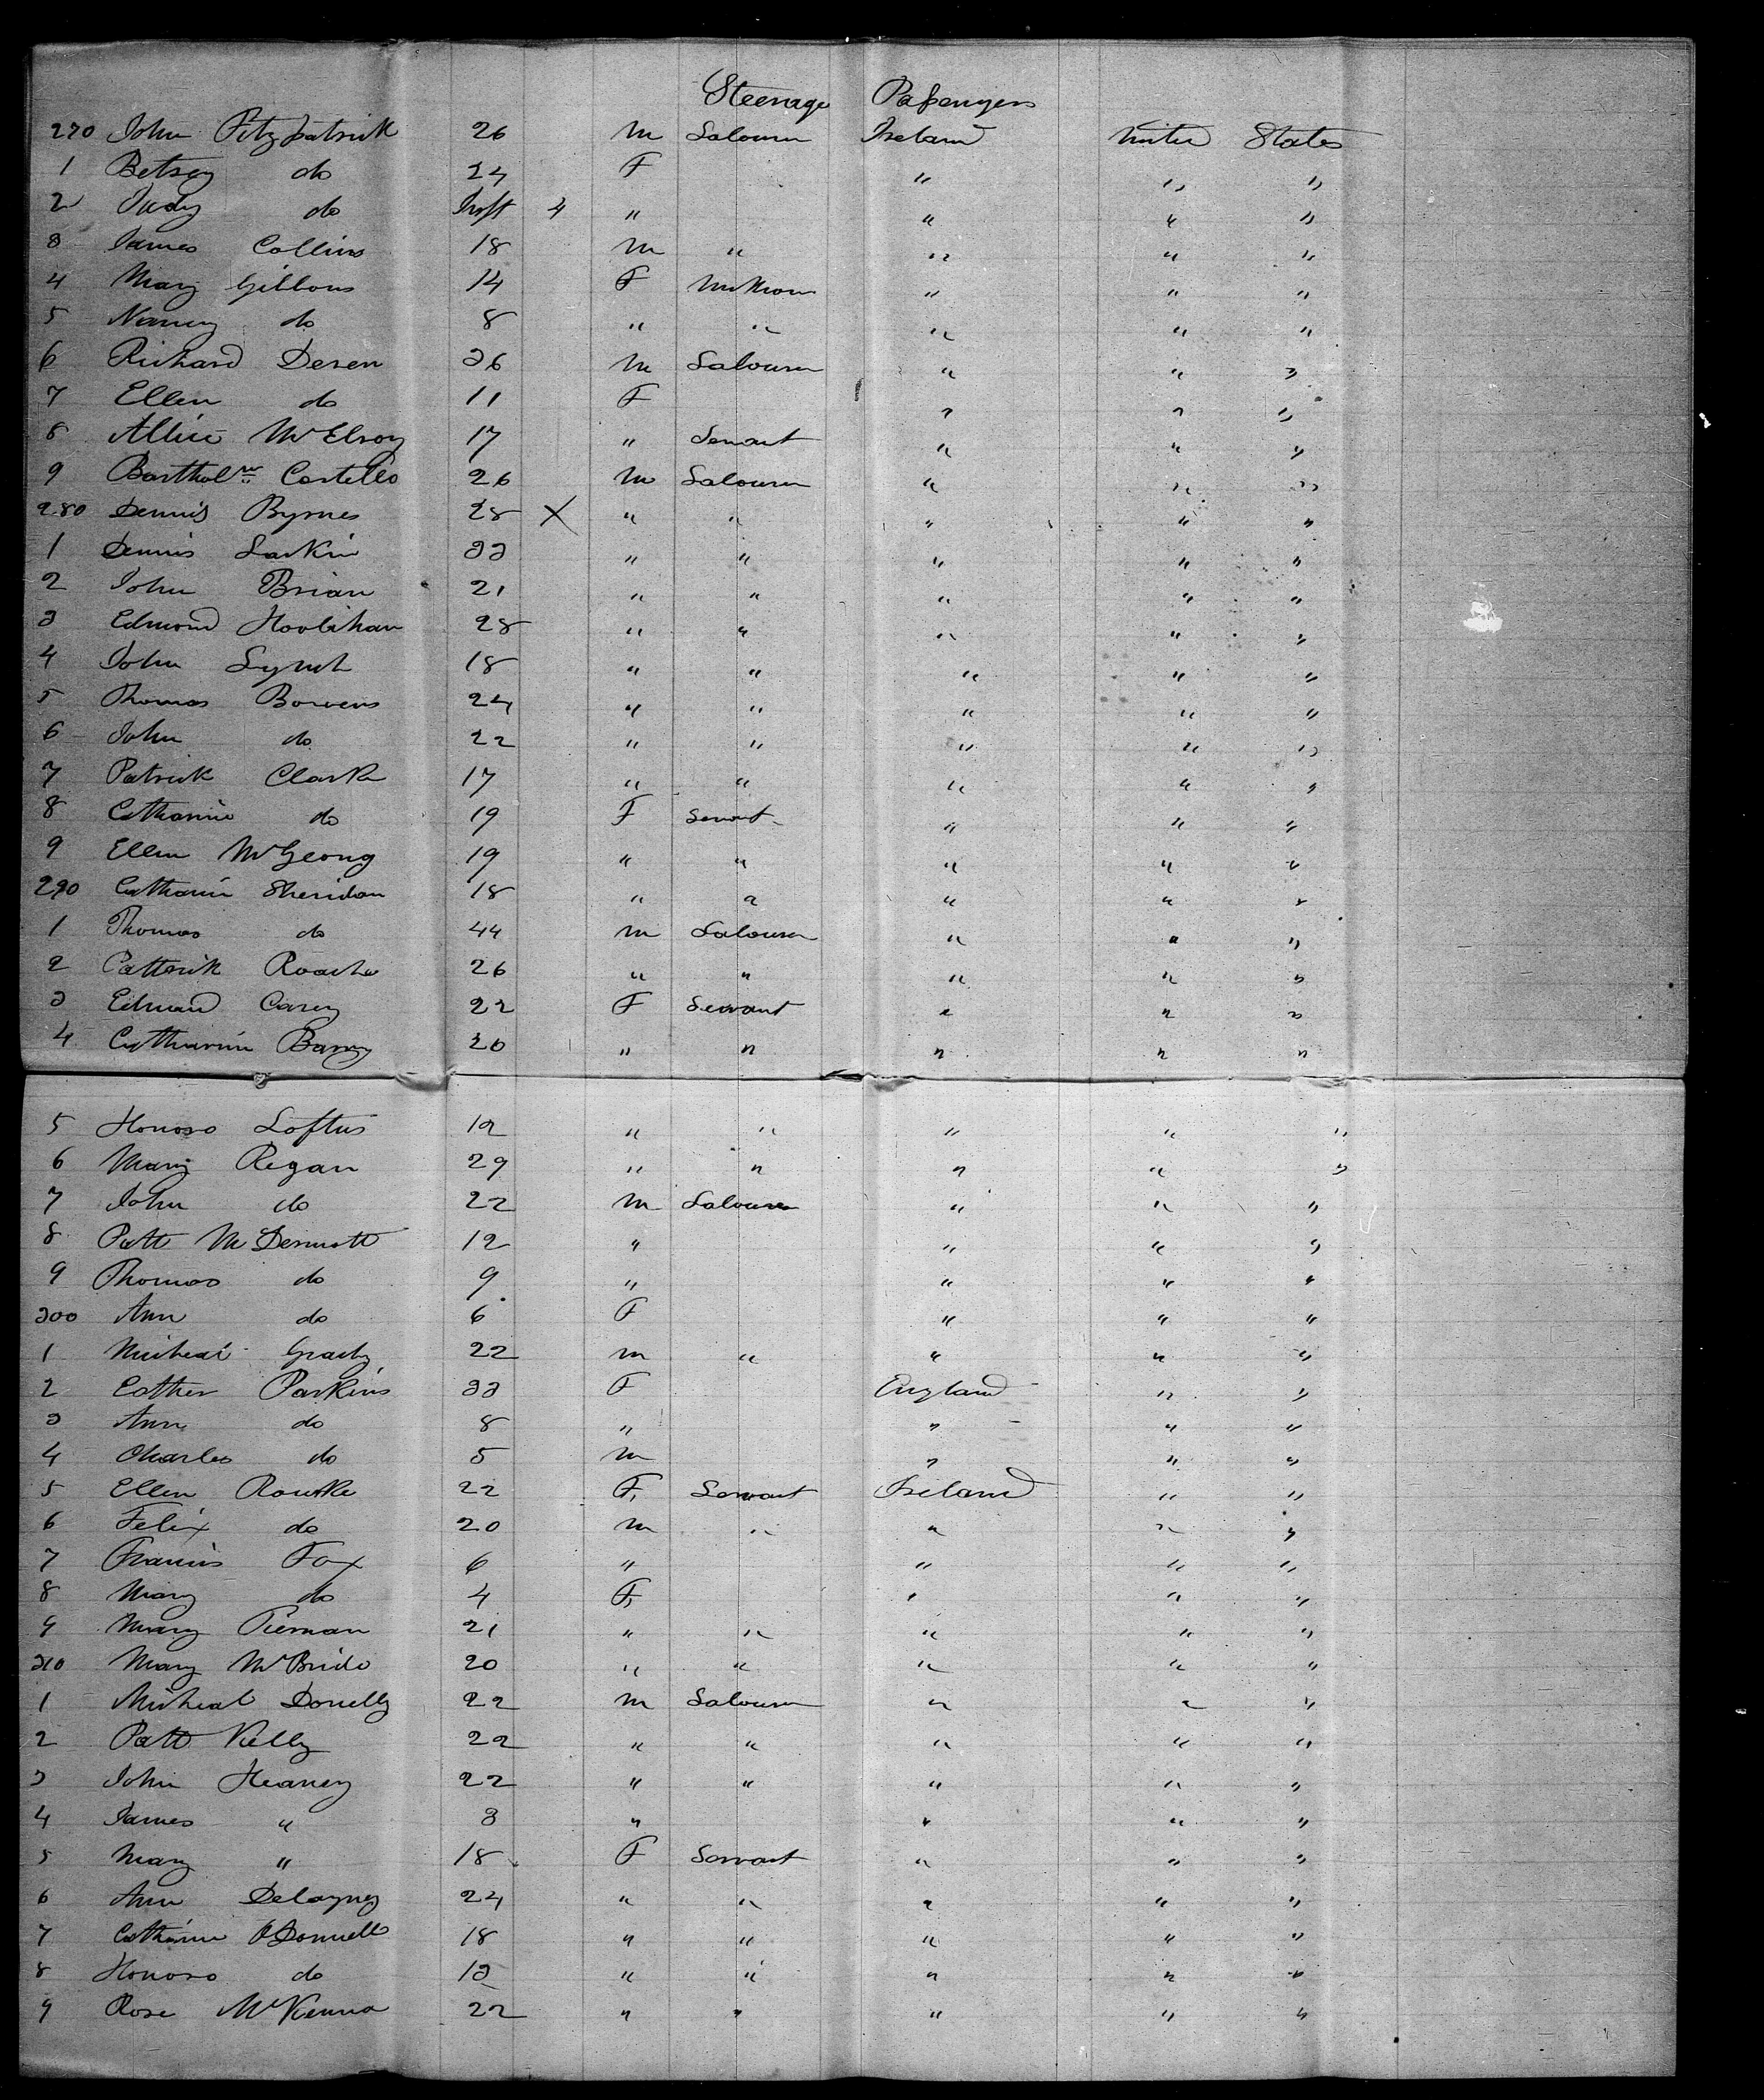 Steerage Passengers
270 John Fitzpatrick 26 M Labourer Ireland United States
1 Betsey do 24 F " " "
2 Judy do Inft 4 " " " "
3 James Collins 18 M " " " "
4 Mary Gibbons 14 F Unknown " " "
5 Nancy do 8 " " " " "
6 Richard Deren 36 M Labourer " " "
7 Ellen do 11 F " " "
8 Allice McElroy 17 " Servant " " "
9 Barthol Costello 26 M Labourer " " "
280 Dennis Byrnes 28 X " " " " "
1 Dennis Larkin 33 " " " " "
2 John Brian 21 " " " " "
3 Edmond Hoolihan 28 " " " " "
4 John Lynch 18 " " " " "
5 Thomas Bowens 24 " " " " "
6 John do 22 " " " " "
7 Patrick Clarke 17 " " " " "
8 Catharine do 19 F Servant " " "
9 Ellen McGeong 19 " " " " "
290 Catharin Sheridan 18 " " " " "
1 Thomas do 44 M Labourer " " "
2 Patterick Roache 26 " " " " "
3 Edward Carey 22 F Servant " " "
4 Catharine Barry 20 " " " " "
5 Honoro Loftus 12 " " " " "
6 Mary Regan 29 " " " " "
7 John do 22 M Labourer " " "
8 Patt McDermott 12 " " " "
9 Thomas do 9 " " " "
300 Ann do 6 F " " "
1 Micheal Grady 22 M " " " "
2 Esther Parkins 33 F England " "
3 Ann do 8 " " " "
4 Charles do 5 M " " "
5 Ellen Rourke 22 F Servant Ireland " "
6 Felix do 20 M " " " "
7 Francis Fox 6 " " " "
8 Mary do 4 F " " "
9 Mary Tiernan 21 " " " " "
310 Mary McBride 20 " " " " "
1 Micheal Donelly 22 M Labourer " " "
2 Patt Kelly 22 " " " " "
3 John Heaney 22 " " " " "
4 James " 3 " " " "
5 Mary " 18 F Servant " " "
6 Ann Delayney 24 " " " " "
7 Catharine O'Donnell 18 " " " " "
8 Honoro do 13 " " " " "
9 Rose McKenna 22 " " " " "